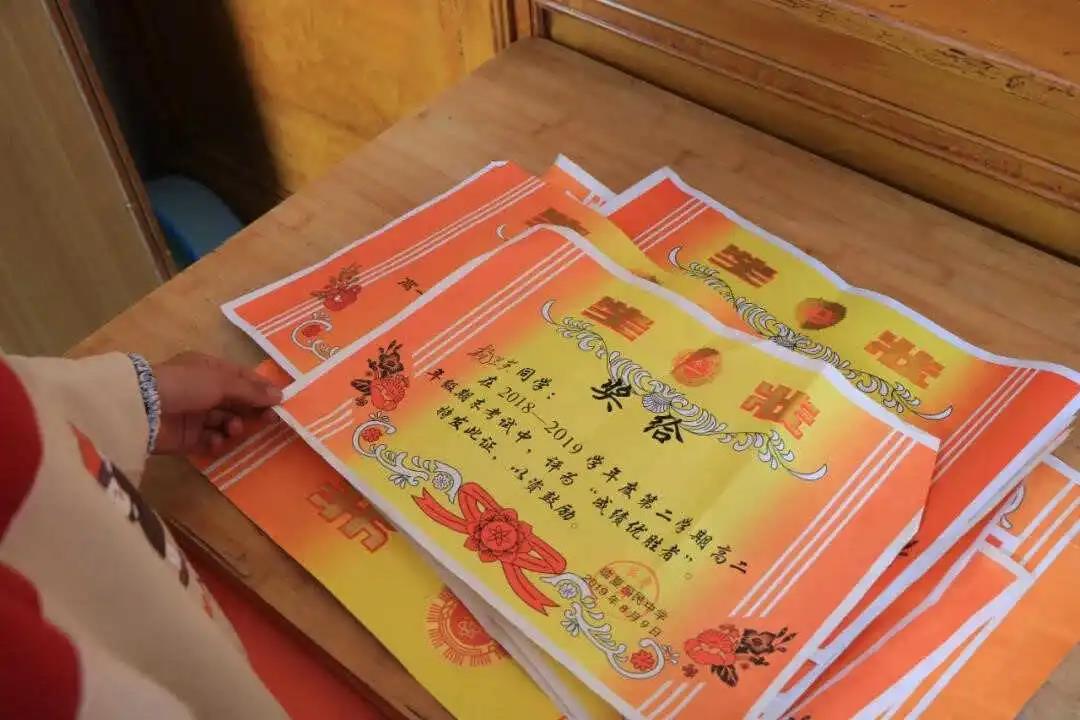 奖状
奖给
同学：
在2018—2019学年度第二学期高二
年级期末考试中，评为“成绩优胜者”。
特发此证，以资鼓励。
2019年8月9日
奖
状
奖
高一